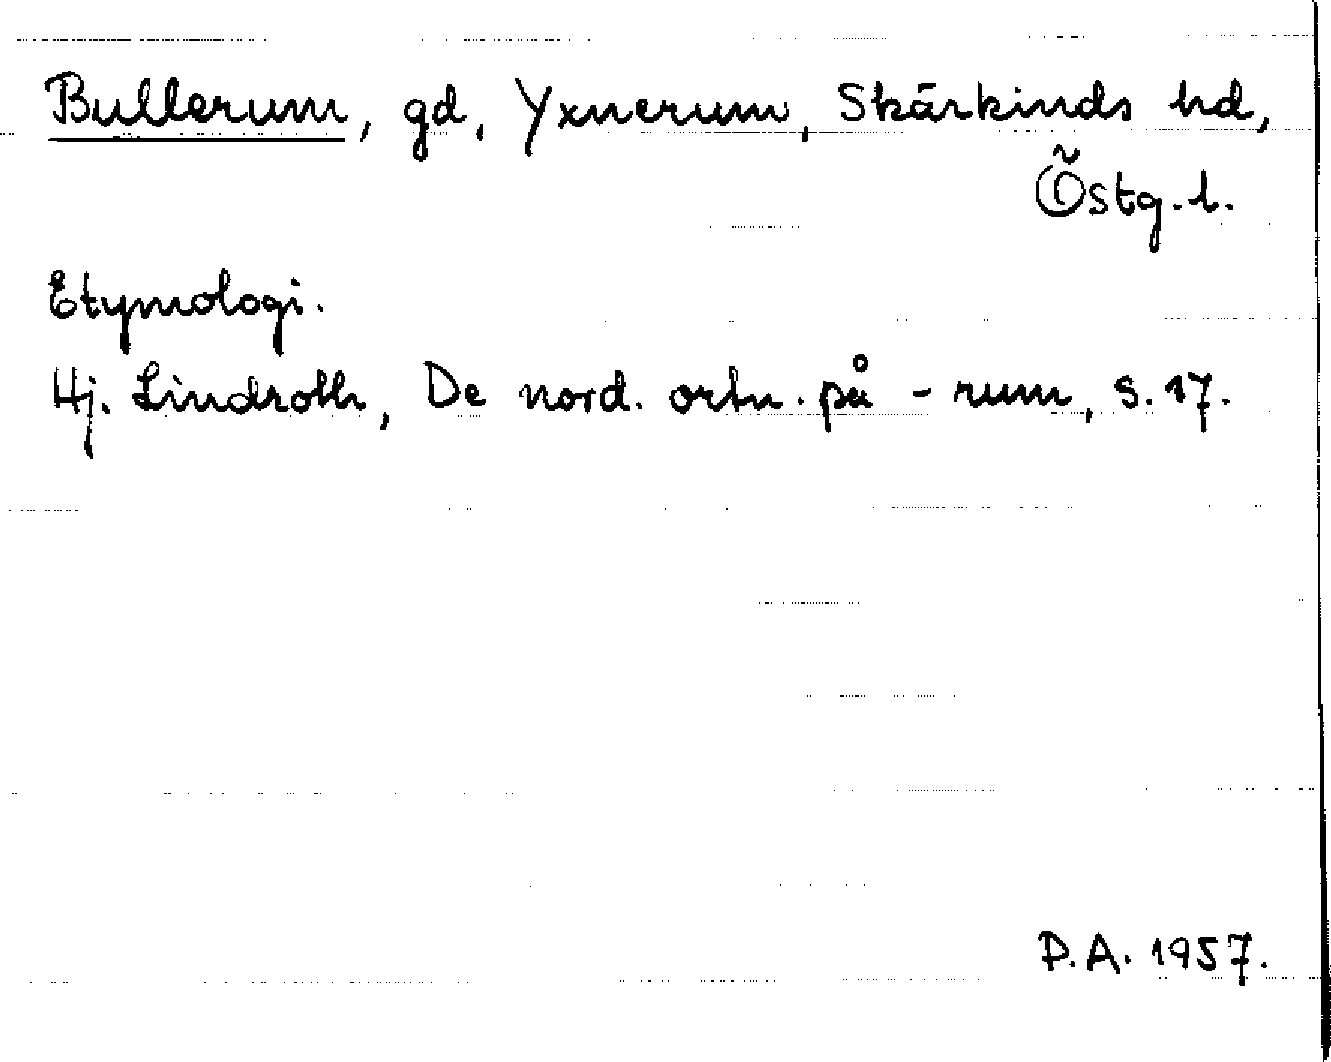 Bullerum, gd, Yxnerum, Skärkinds hd,
Östg. l.
Etymologi.
Hj. Lindroth, De nord. ortn. på -rum, s. 17.
P.A. 1957.